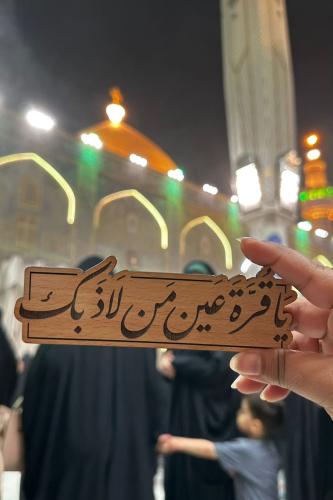 يَا قُرَّةَ عَين مَن لَاذَ بِكَ